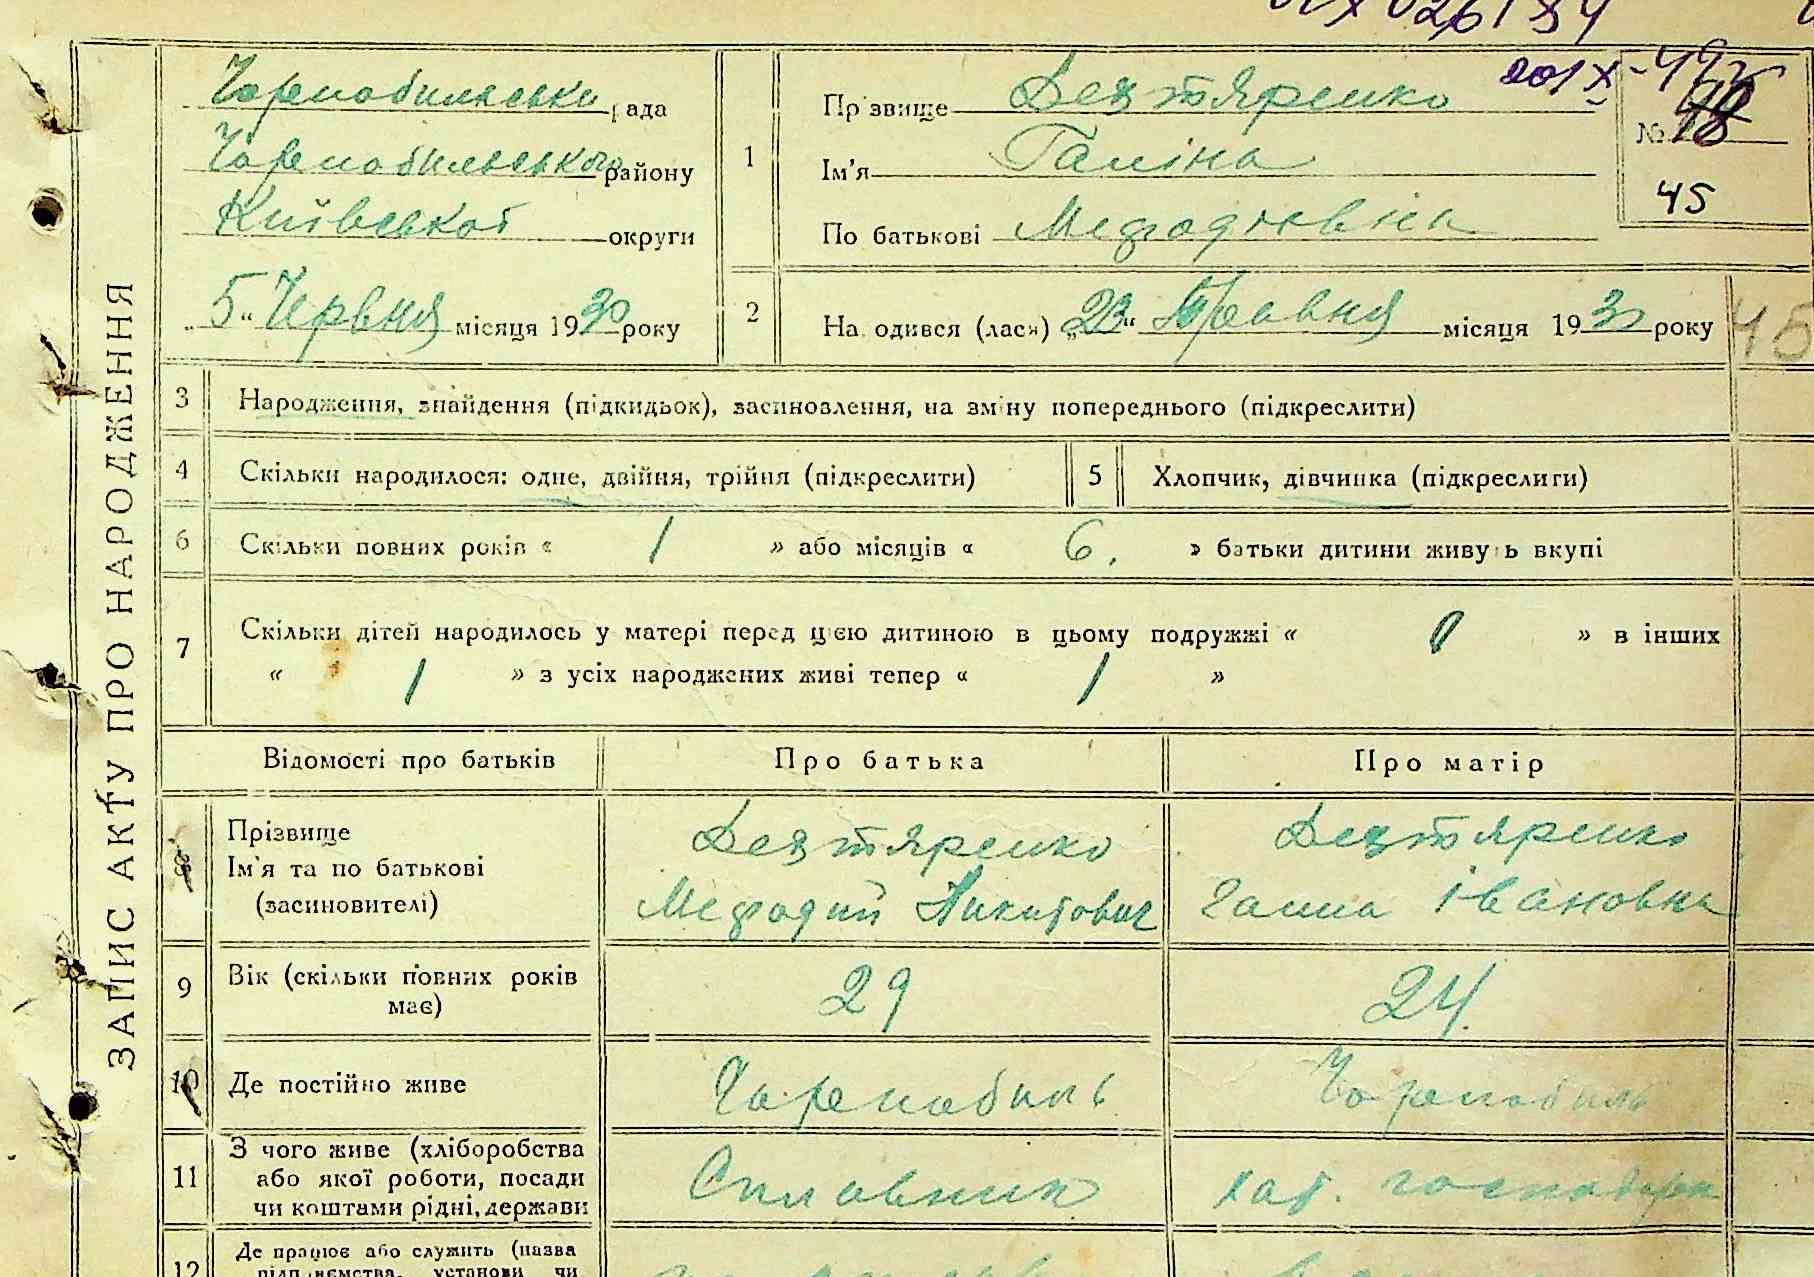 201 X-497
Чорнобильська рада
Чорнобильського району
Київської округи
„5“ Червня місяця 1930 року
1
Прізвище Дехтяренко
Ім'я Галіна
По батькові Мефодіовна
№ 48
45
2
На одився (лась) „23“ Травня місяця 1930 року
45
ЗАПИС АКТУ ПРО НАРОДЖЕННЯ
3 Народження, знайдення (підкидьок), засиновлення, на зміну попереднього (підкреслити)
4 Скільки народилося: одне, двійня, трійня (підкреслити)
5 Хлопчик, дівчинка (підкреслити)
6 Скільки повних років « 1 » або місяців « 6. » батьки дитини живуть вкупі
7 Скільки дітей народилось у матері перед цією дитиною в цьому подружжі « 0 » в інших
« 1 » з усіх народжених живі тепер « 1 »
Відомості про батьків Про батька Про матір
8 Прізвище
Ім'я та по батькові
(засиновителі)
Дехтяренко
Мефодий Никитович
Дехтяренко
Ганна Івановна
9 Вік (скільки повних років
має)
29
24.
10 Де постійно живе Чорнобиль Чорнобиль
11 З чого живе (хліборобства
або якої роботи, посади
чи коштами рідні, держави
Сплавник
хат. господарка
12 Де працює або служить (назва
підприємства, установи чи